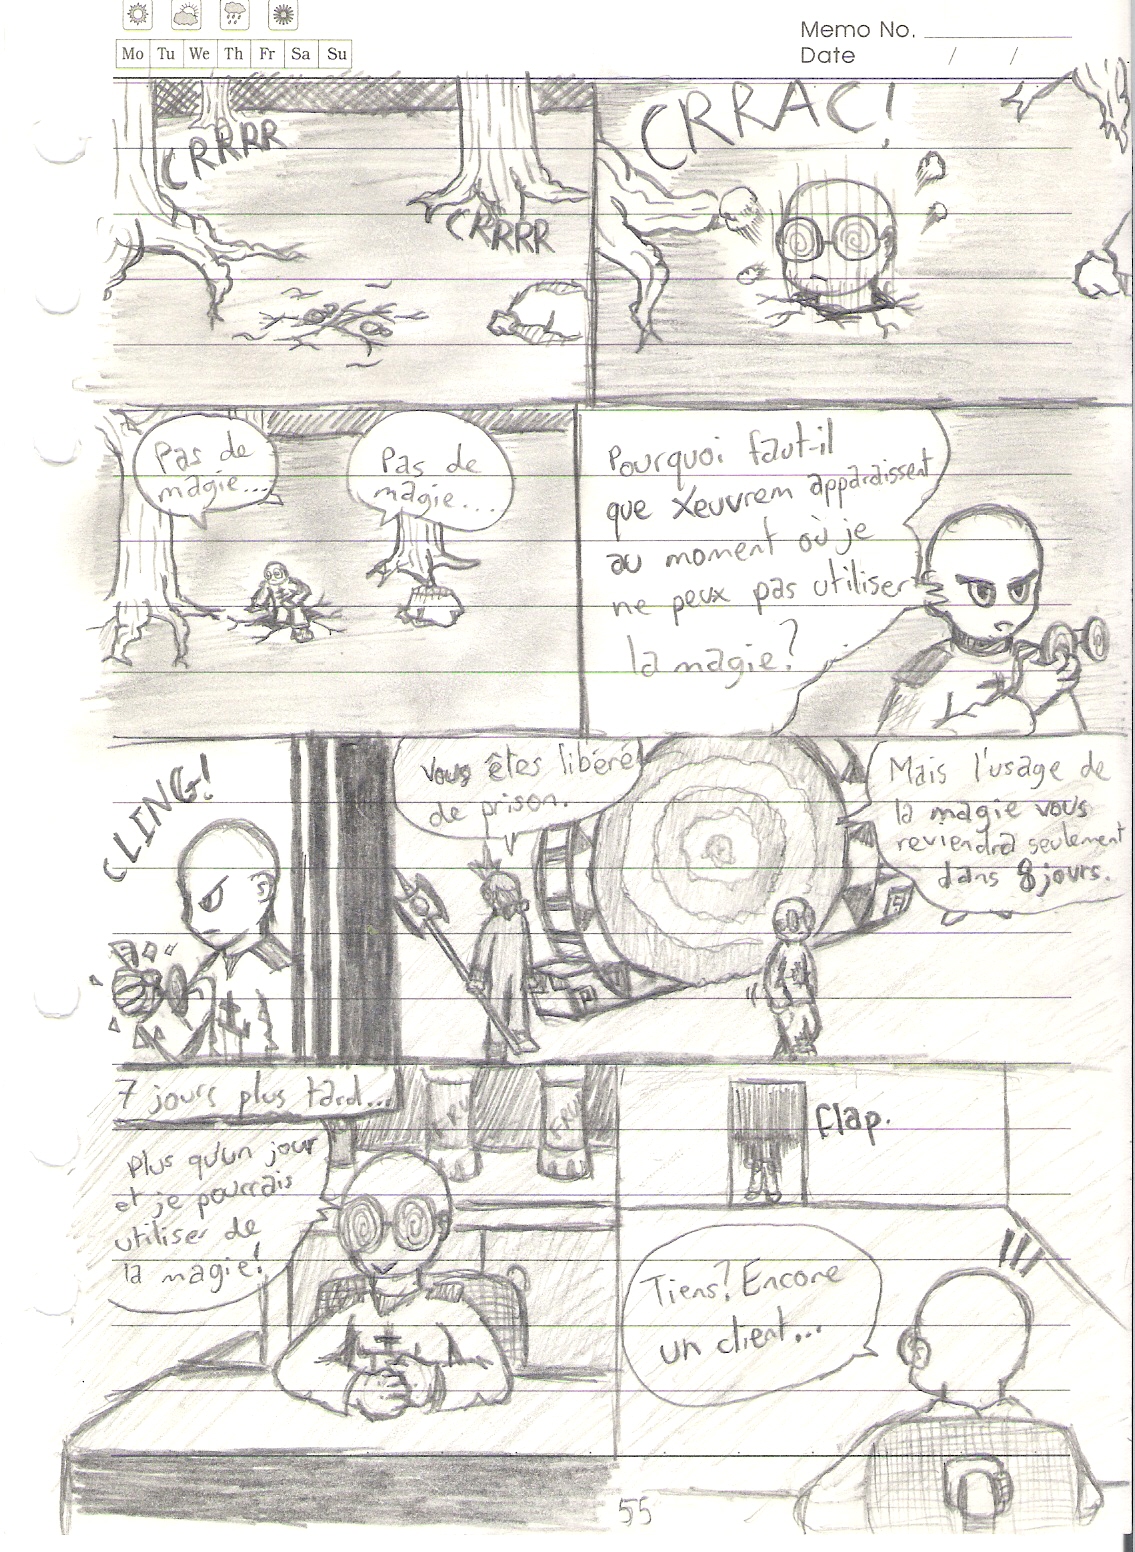 Mo Tu We Th Fr Sa Su
Memo No.
Date / /
CRRRR
CRRRR
CRRAC!
Pas de
magie...
Pas de
magie...
Pourquoi faut-il
que Xeuvrem apparaissent
au moment où je
ne peux pas utiliser
la magie?
CLING!
Vous êtes libéré
de prison.
Mais l'usage de
la magie vous
reviendra seulement
dans 8 jours.
7 jours plus tard...
Plus qu'un jour
et je pourrais
utiliser de
la magie!
Flap.
!!!
Tiens? Encore
un client...
55